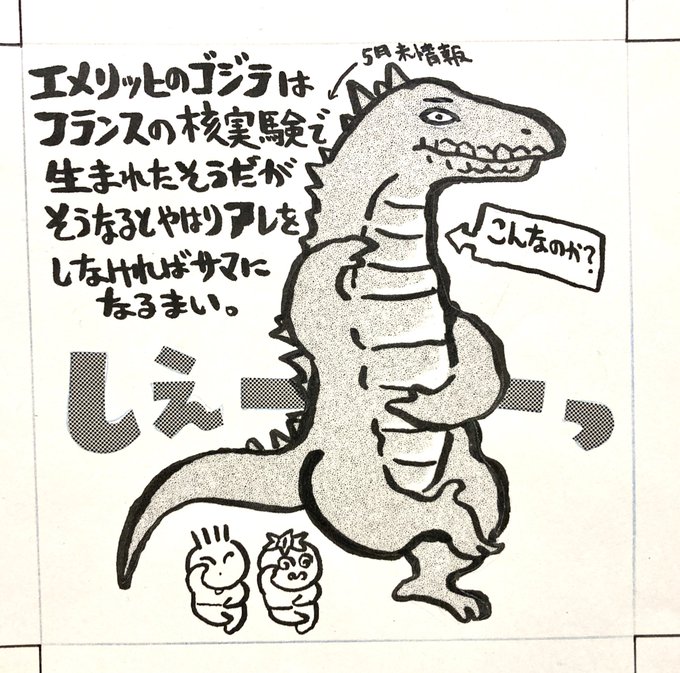 エメリッヒのゴジラは
フランスの核実験で
生まれたそうだが
そうなるとやはりアレを
しなければサマに
なるまい。
5月末情報
こんなのか?
しぇーーっ